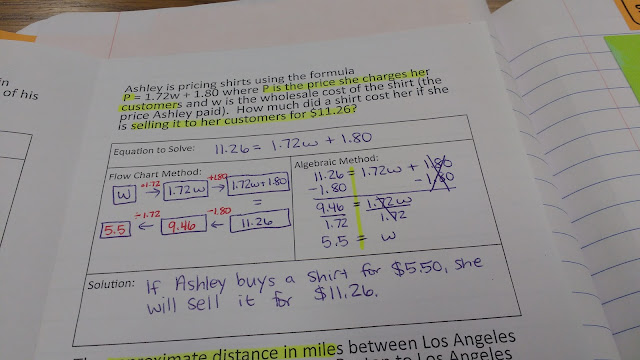 n
of his
Ashley is pricing shirts using the formula
P = 1.72w + 1.80 where P is the price she charges her
customers and w is the wholesale cost of the shirt (the
price Ashley paid). How much did a shirt cost her if she
is selling it to her customers for $11.26?
Equation to Solve: 11.26 = 1.72w + 1.80
Flow Chart Method:
·1.72 +1.80
W → 1.72w → 1.72w+1.80
=
÷1.72 -1.80
5.5 ← 9.46 ← 11.26
Algebraic Method:
11.26 = 1.72w + 1.80
-1.80 -1.80
9.46 = 1.72w
1.72 1.72
5.5 = w
Solution: If Ashley buys a shirt for $5.50, she
will sell it for $11.26.
approximate distance in miles between Los Angeles
to Los Angeles